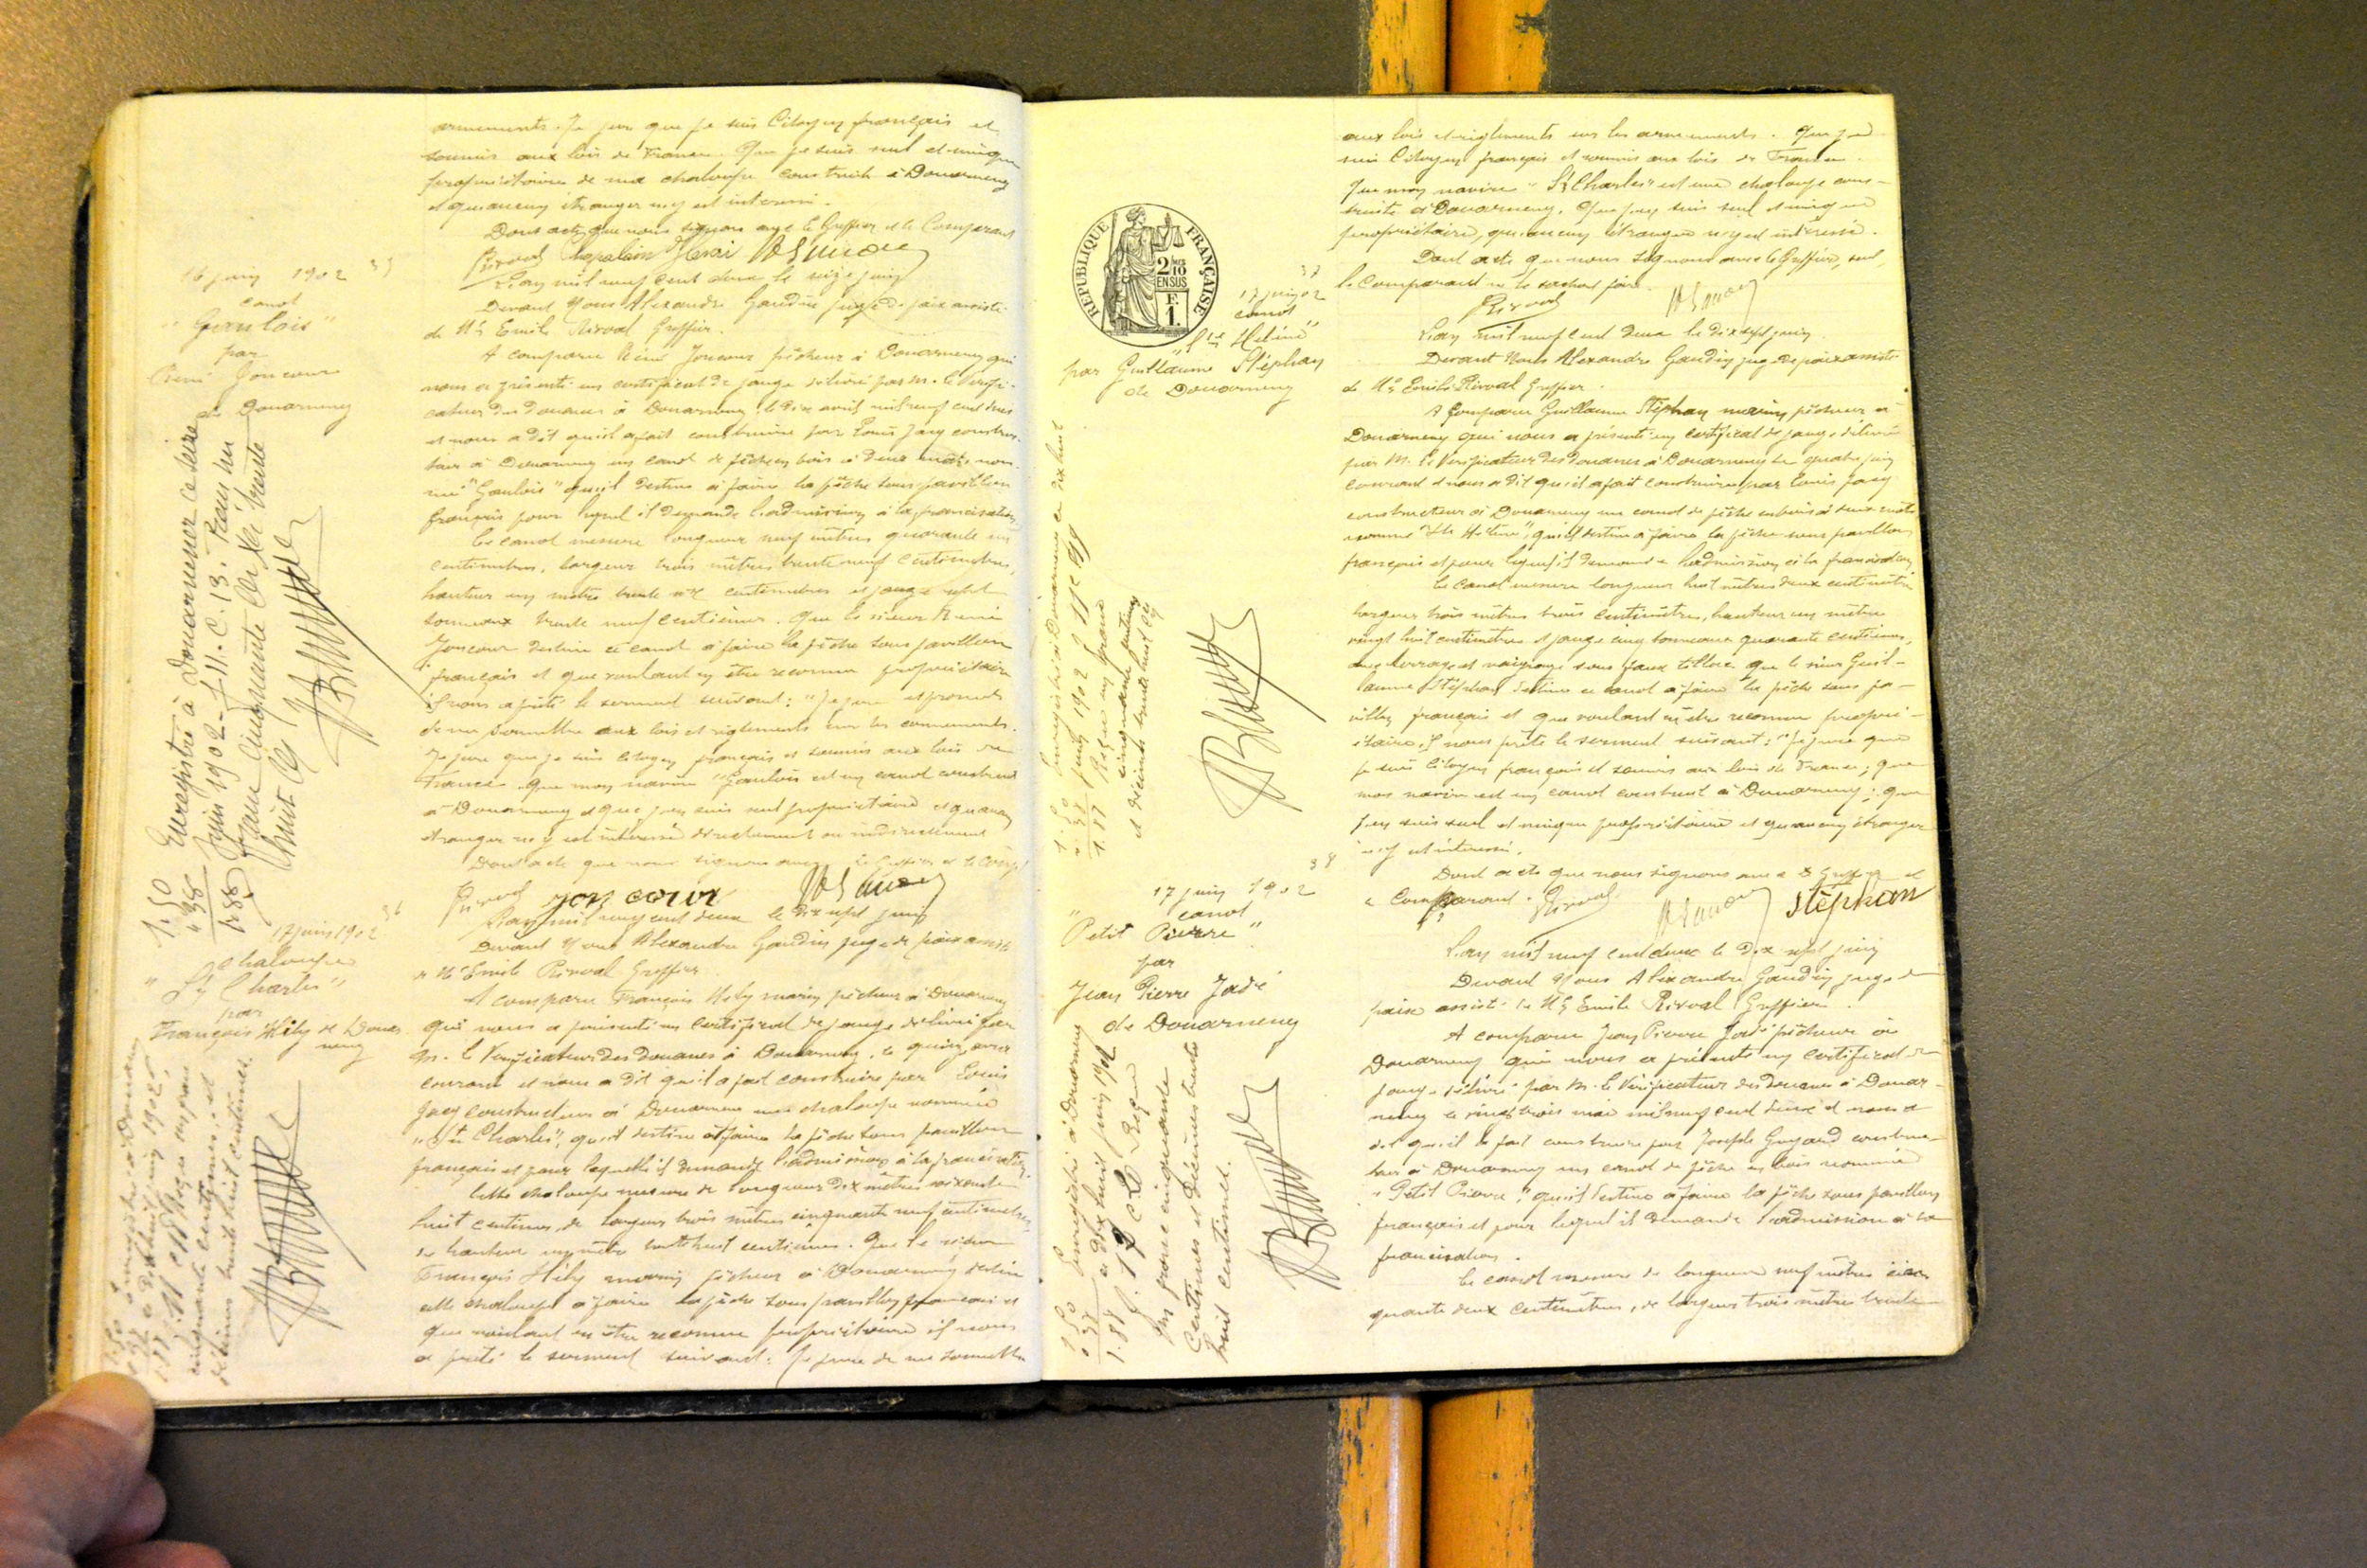 armements. Je jure que je suis Citoyen français et
soumis aux lois de France. Que je suis seul et unique
propriétaire de ma chaloupe construite à Douarnenez
et qu'aucun étranger n'y est intéressé.
Dont acte que nous signons avec le Greffier et le Comparant
Rivoal Chapalain Henri
16 juin 1902 35
canot
"Gaulois"
par
René Joncour
de Douarnenez
L'an mil neuf cent deux le seize juin
Devant Nous Alexandre Gaudin juge de paix assisté
de Me Emile Rivoal Greffier.
A comparu René Joncour pêcheur à Douarnenez qui
nous a présenté un certificat de jauge délivré par M. le Vérifi-
cateur des Douanes à Douarnenez le dix avril mil neuf cent deux
et nous a dit qu'il a fait construire par Louis Jacq construc-
teur à Douarnenez un canot de pêche en bois à deux mâts nom-
mé "Gaulois" qu'il destine à faire la pêche sous pavillon
français pour lequel il demande l'admission à la francisation
Ce canot mesure longueur neuf mètres quarante un
centimètres, largeur trois mètres trente neuf centimètres,
hauteur un mètre trente centimètres et jauge sept
tonneaux trente neuf centièmes. Que le sieur René
Joncour destine ce canot à faire la pêche sous pavillon
français et que voulant en être reconnu propriétaire
il nous a prêté le serment suivant: "Je jure et promets
de me soumettre aux lois et règlements sur les armements.
Je jure que je suis citoyen français et soumis aux lois de
France. Que mon navire "Gaulois" est un canot construit
à Douarnenez et que j'en suis seul propriétaire et qu'aucun
étranger n'y est intéressé directement ou indirectement
Dont acte que nous signons avec le Greffier et le Comp.
Rivoal joncour
Enregistré à Douarnenez ce seize
Juin 1902 - f. 11. C. 13. Reçu un
franc cinquante cs
huit cs
1.50
" 38
1.88
36
17 juin 1902
chaloupe
"St Charles"
par
François Hély de Douar-
nenez
L'an mil neuf cent deux le dix sept juin
Devant Nous Alexandre Gaudin juge de paix assisté
de Me Emile Rivoal Greffier.
A comparu François Hély marin pêcheur à Douarnenez
qui nous a présenté un certificat de jauge délivré par
M. le Vérificateur des douanes à Douarnenez, le quinze
courant et nous a dit qu'il a fait construire par Louis
Jacq constructeur à Douarnenez une chaloupe nommée
"St Charles", qu'il destine à faire la pêche sous pavillon
français et pour laquelle il demande l'admission à la francisation.
Cette chaloupe mesure de longueur dix mètres soixante
huit centimes, de largeur trois mètres cinquante neuf centimètres,
de hauteur un mètre huit centimes. Que le sieur
François Hély marin pêcheur à Douarnenez destine
cette chaloupe à faire la pêche sous pavillon français et
que voulant en être reconnu propriétaire il nous
a prêté le serment suivant: Je jure de me soumettre
Enregistré à Douarnenez
le dix huit juin 1902
Reçu un franc
cinquante centimes et
décimes trente huit centimes.
REPUBLIQUE FRANÇAISE
2/10 EN SUS
F. 1.
aux lois et règlements sur les armements. Que je
suis Citoyen français et soumis aux lois de France.
Que mon navire "St Charles" est une chaloupe cons-
truite à Douarnenez, que j'en suis seul et unique
propriétaire, qu'aucun étranger n'y est intéressé.
Dont acte que nous signons avec le Greffier, seul,
le Comparant ne le sachant faire.
Rivoal
37
17 juin 02
canot
"Ste Hélène"
par Guillaume Stéphan
de Douarnenez
L'an mil neuf cent deux le dix sept juin
Devant Nous Alexandre Gaudin juge de paix assisté
de Me Emile Rivoal Greffier.
A Comparu Guillaume Stéphan marin pêcheur à
Douarnenez qui nous a présenté un certificat de jauge délivré
par M. le Vérificateur des Douanes à Douarnenez le quatre juin
courant et nous a dit qu'il a fait construire par Louis Jacq
constructeur à Douarnenez un canot de pêche en bois à deux mâts
nommé "Ste Hélène", qu'il destine à faire la pêche sous pavillon
français et pour lequel il demande l'admission à la francisation
Ce canot mesure longueur huit mètres deux centimètres
largeur trois mètres trois centimètres, hauteur un mètre
vingt huit centimètres et jauge cinq tonneaux quarante centièmes,
que le sieur Guil-
laume Stéphan destine ce canot à faire la pêche sous pa-
villon français et que voulant en être reconnu propri-
étaire, il nous prête le serment suivant: "Je jure que
je suis Citoyen français et soumis aux lois de France; que
mon navire est un canot construit à Douarnenez; que
j'en suis seul et unique propriétaire et qu'aucun étranger
n'y est intéressé.
Dont acte que nous signons avec le Greffier et
le Comparant. Rivoal Stéphan
Enregistré à Douarnenez ce dix huit
juin 1902
Reçu un franc
cinquante centimes
et décimes trente huit cs
1.50
1.88
38
17 juin 1902
canot
"Petit Pierre"
par
Jean Pierre Jadé
de Douarnenez
L'an mil neuf cent deux le dix sept juin
Devant Nous Alexandre Gaudin juge de
paix assisté de Me Emile Rivoal Greffier.
A comparu Jean Pierre Jadé pêcheur à
Douarnenez qui nous a présenté un certificat de
jauge délivré par M. le Vérificateur des douanes à Douar-
nenez le vingt trois mai mil neuf cent deux et nous a
dit qu'il a fait construire par Joseph Guyard construc-
teur à Douarnenez un canot de pêche en bois nommé
"Petit Pierre", qu'il destine à faire la pêche sous pavillon
français et pour lequel il demande l'admission à la
francisation.
Ce canot mesure de longueur neuf mètres cin-
quante deux centimètres, de largeur trois mètres trente
Enregistré à Douarnenez
ce dix huit juin 1902
Reçu
Un franc cinquante
Centimes et Décimes trente
huit centimes.
1.50
1.88